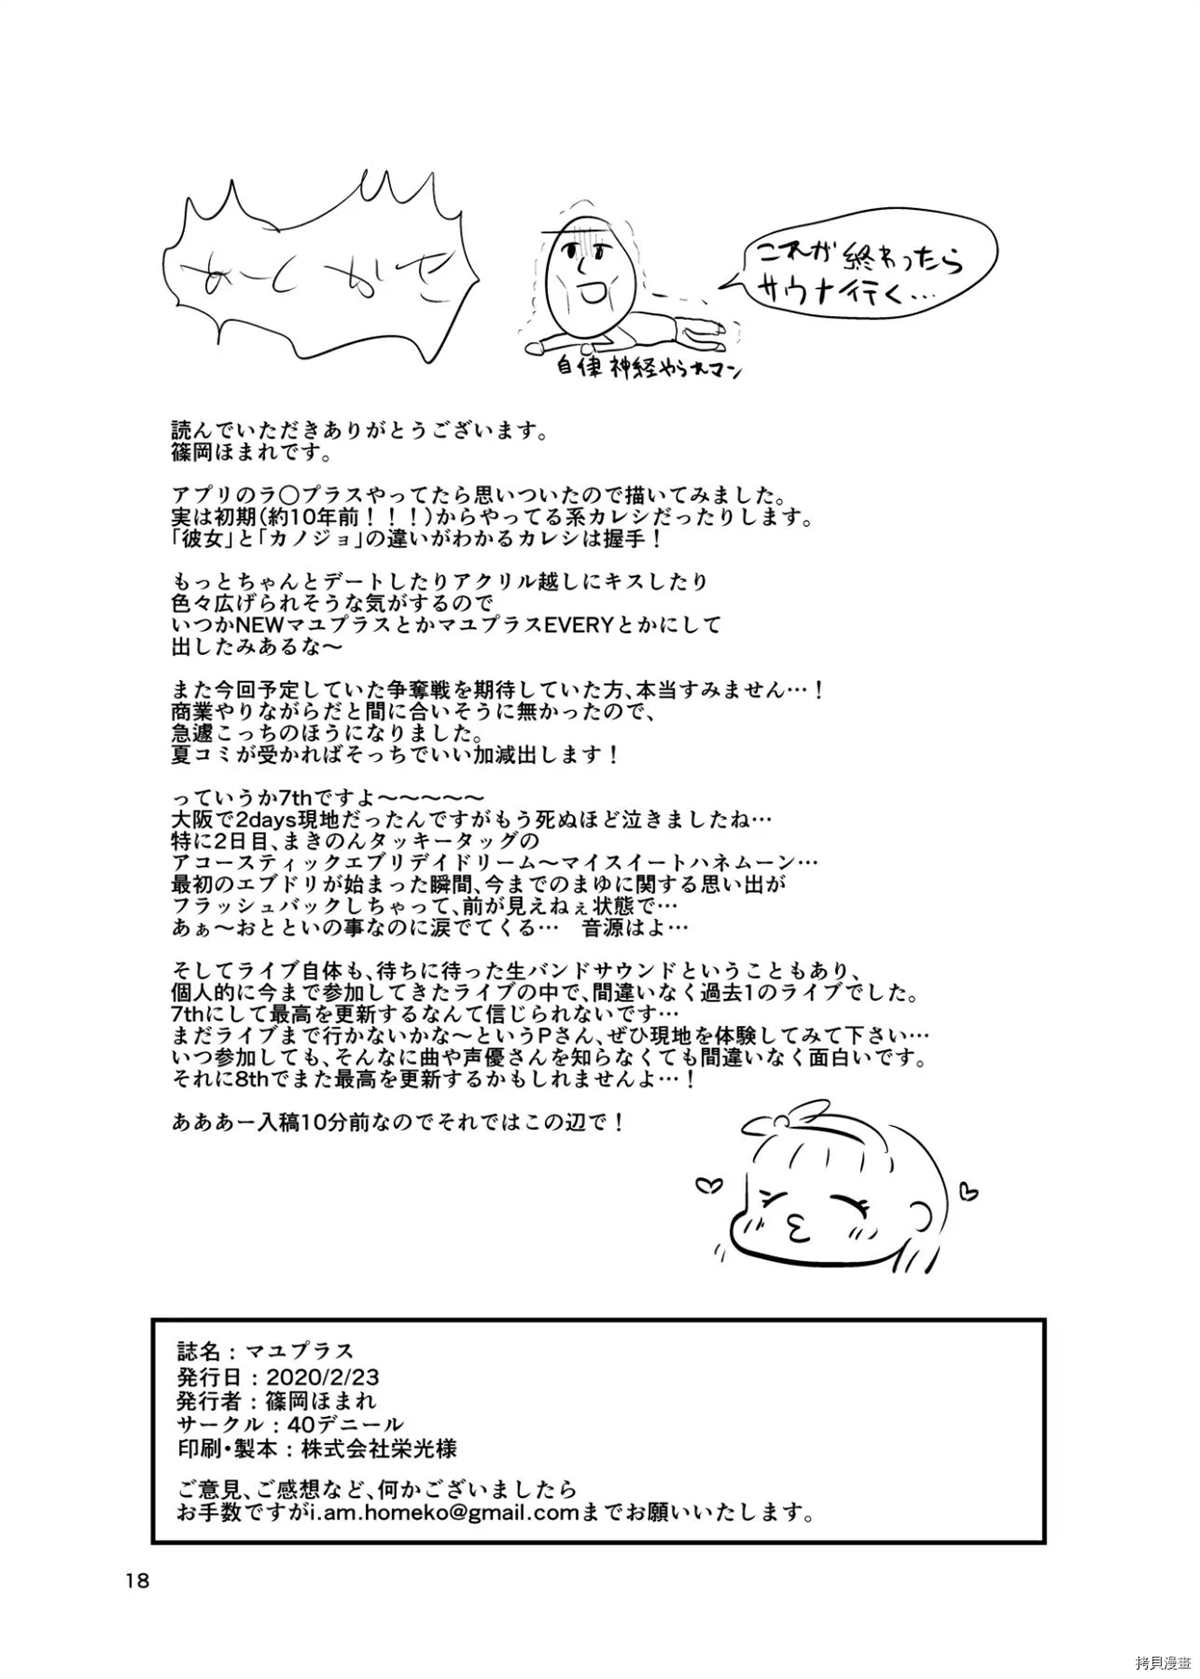 あとがき
これが終わったら
サウナ行く…
自律神経やられマン
読んでいただきありがとうございます。
篠岡ほまれです。
アプリのラ〇プラスやってたら思いついたので描いてみました。
実は初期(約10年前！！！)からやってる系カレシだったりします。
「彼女」と「カノジョ」の違いがわかるカレシは握手！
もっとちゃんとデートしたりアクリル越しにキスしたり
色々広げられそうな気がするので
いつかNEWマユプラスとかマユプラスEVERYとかにして
出したみあるな〜
また今回予定していた争奪戦を期待していた方、本当すみません…！
商業やりながらだと間に合いそうに無かったので、
急遽こっちのほうになりました。
夏コミが受かればそっちでいい加減出します！
っていうか7thですよ〜〜〜〜〜
大阪で2days現地だったんですがもう死ぬほど泣きましたね…
特に2日目、まきのんタッキータッグの
アコースティックエブリデイドリーム〜マイスイートハネムーン…
最初のエブドリが始まった瞬間、今までのまゆに関する思い出が
フラッシュバックしちゃって、前が見えねぇ状態で…
あぁ〜おとといの事なのに涙でてくる…　音源はよ…
そしてライブ自体も、待ちに待った生バンドサウンドということもあり、
個人的に今まで参加してきたライブの中で、間違いなく過去1のライブでした。
7thにして最高を更新するなんて信じられないです…
まだライブまで行かないかな〜というPさん、ぜひ現地を体験してみて下さい…
いつ参加しても、そんなに曲や声優さんを知らなくても間違いなく面白いです。
それに8thでまた最高を更新するかもしれませんよ…！
あああー入稿10分前なのでそれではこの辺で！
誌名：マユプラス
発行日：2020/2/23
発行者：篠岡ほまれ
サークル：40デニール
印刷・製本：株式会社栄光様
ご意見、ご感想など、何かございましたら
お手数ですがi.am.homeko@gmail.comまでお願いいたします。
18
拷貝漫畫